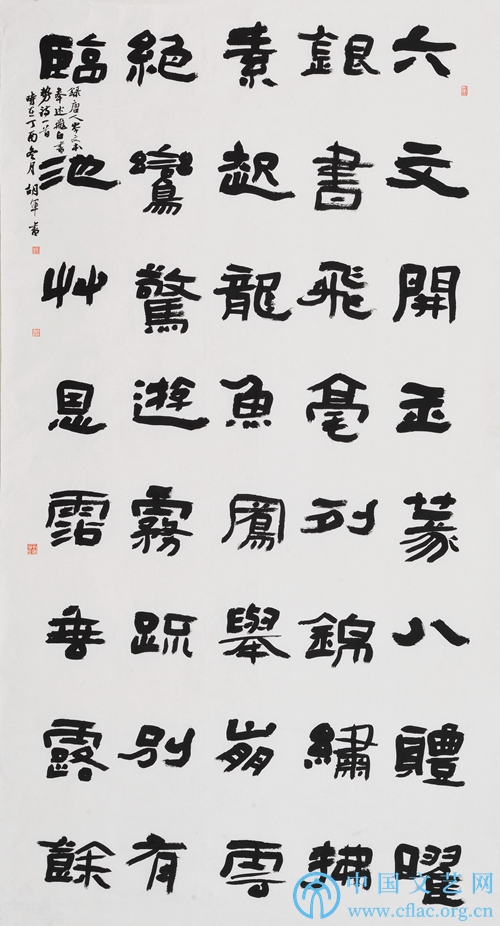 六文開玉篆八體曜
銀書飛毫列錦繡拂
素起龍魚鳳舉崩雲
絕鸞驚遊霧疏別有
臨池艸恩霑垂露餘
録唐人岑文本
奉述飛白書
勢詩一首
時在丁酉冬月 胡軍書
中国文艺网
www.cflac.org.cn